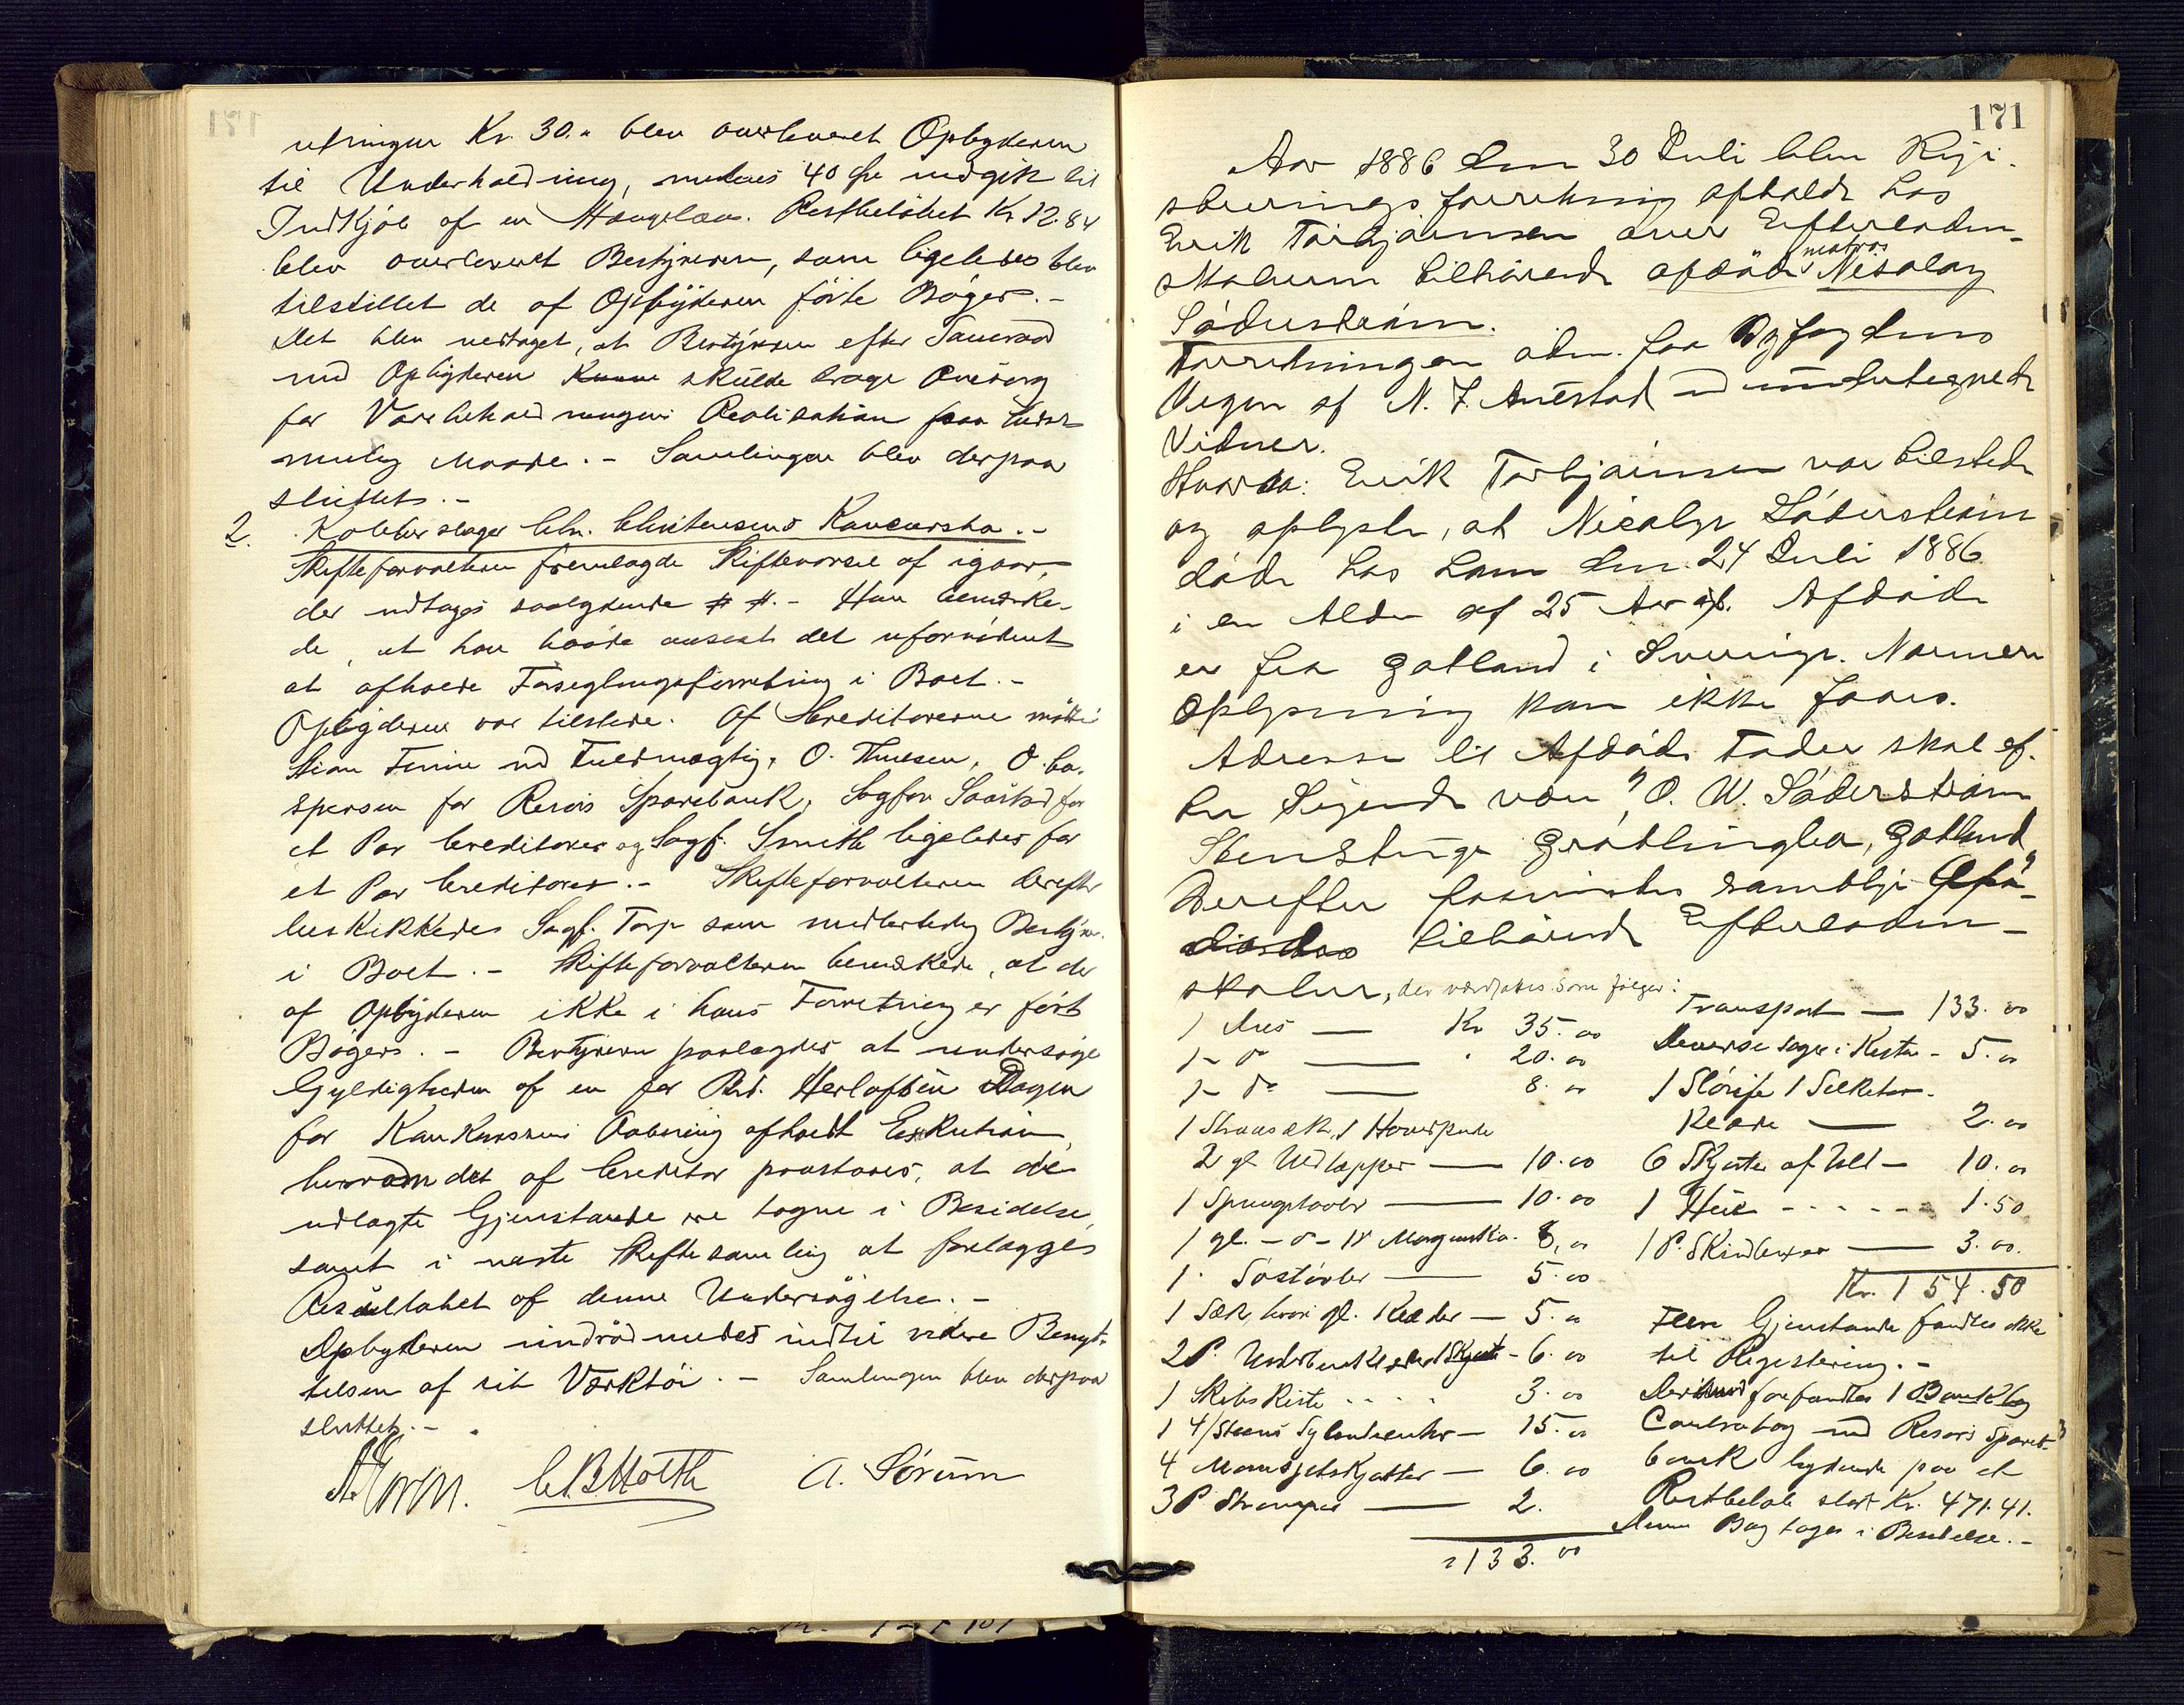 Kr. 30.- blev overleveret Opbyderen
til Underholdning, medens 40 Øre medgik til
Indkjøb af en Hængelaas. Restbeløbet Kr 12.84
blev overleveret Bestyreren, som ligeledes blev
tilstillet de af Opbyderen førte Bøger.-
Det blev vedtaget, at Bestyreren efter Samraad
med Opbyderen skulde drage Omsorg
for Varebeholdningens Realisation paa bedst
mulig Maade.- Samlingen blev derpaa
sluttet.-
2. Kobberslager Chr. Christensens Konkursbo.-
Skifteforvalteren fremlagde Skiftevarsel af igaar,
der indtages saalydende # #.- Han bemærke-
de, at han havde anseet det ufornødent
at afholde Forseglingsforretning i Boet.-
Opbyderen var tilstede. Af Creditorerne mødte
Finne ved Fuldmægtig, O. Thuesen, O. Ca-
spersen for Risørs Sparebank, Sagfør Saastad for
et Par Creditorer og Sagf. Smith ligeledes for
et Par Creditorer.- Skifteforvalteren derefter
beskikkedes Sagf. Torp som midlertidig Bestyrer
i Boet.- Skifteforvalteren bemærkede, at der
af Opbyderen ikke i hans Forretning er ført
Bøger.- Bestyreren paalagdes at undersøge
Gyldigheden af en for Herlofsen Dagen
for Konkursens Aabning afholdt Exekution,
hvorom det af Creditor paastaaes, at de
udlagte Gjenstande ere tagne i Besiddelse,
samt i næste Skiftesamling at forelægges
Resultatet af denne Undersøgelse.-
Opbyderen indrømmedes indtil videre Benyt-
telsen af sit Værktøi.- Samlingen blev derpaa
sluttet.-
C. B. Motth A. Sørum
171
Aar 1886 den 30 Juli blev Regi-
streringsforretning afholdt hos
Erik Torbjørnsen over Efterladen-
skaberne tilhørende afdøde matros Nicolay
Söderström.
Forretningen adm. for Byfogdens
Vegne af N. J. Anestad ved undertegnede
Vidner.
Hvorda: Erik Torbjørnsen var tilstede
og oplyste, at Nicolay Söderström
døde hos ham den 24 Juli 1886
i en Alder af 25 Aar. Afdøde
er fra Gotland i Sverige. Nærmere
Oplysning kan ikke faaes.
Adresse til Afdødes Fader skal ef-
ter Sigende være "O. W. Söderström
Stenstuge Gröthlingbo, Gotland"
Derefter foranviste samtlige Afdø-
des tilhørende Efterladen-
skaber, der værdsattes som følger:
1 Dres — Kr 35.00
1 - do — 20.00
1 - do — 8.00
1 Straasæk, 1 Hovedpude
2 gl Uldtæpper — 10.00
1 Springstøvler — 10.00
1 gl. - do - 1 P Morgensko. 8.00
1 Søstøvler — 5.00
1 Sæk hvori gl. Klæder — 5.00
2 P. Underbenklæder 1 Skjorte - 6.00
1 Skibskiste 3.00
1 4/Steens Sylinderuhr — 15.00
4 Manschetskjorter — 6.00
3 P Strømper — 2.
133.00
Transport — 133.00
Diverse sager i Kisten - 5.00
1 Sløife 1 Silketør-
klæde — 2.00
6 Skjorter af Uld — 10.00
1 Hue - - - - 1.50
1 P. Skindbuxer — 3.00.
Kr. 154.50
Flere Gjenstande fandtes ikke
til Registrering.-
forefandtes 1 Bankbog
Contrabog med Risørs Spare-
bank lydende paa et
Restbeløb stort Kr. 471.41.
Denne Bog toges i Besiddelse.-